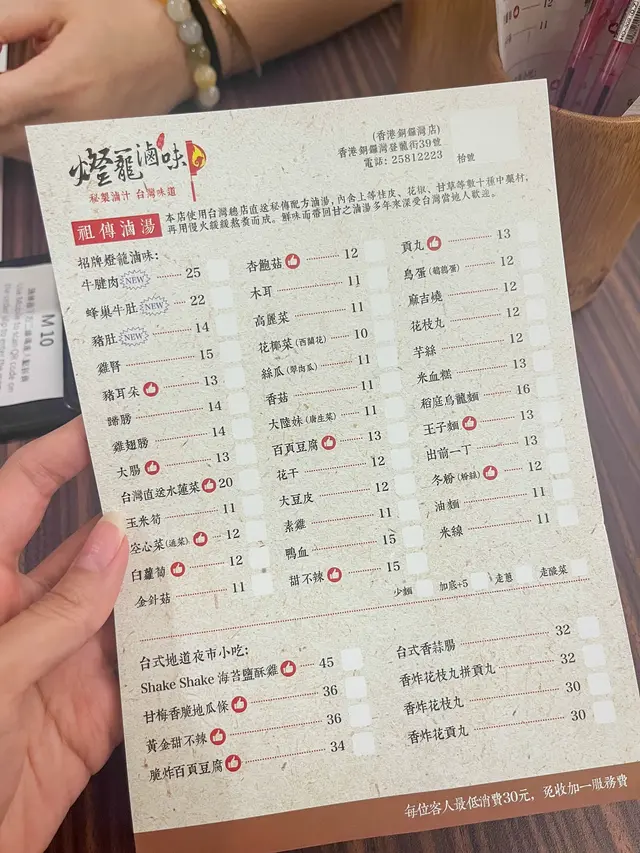 燈籠滷味
秘製滷汁 台灣味道
(香港銅鑼灣店)
香港銅鑼灣登龍街39號
電話: 25812223
枱號
祖傳滷湯
本店使用台灣總店直送秘傳配方滷湯，內含上等桂皮、花椒、甘草等數十種中藥材，
再用慢火緩緩熬煮而成。鮮味而帶回甘之滷湯多年來深受台灣當地人歡迎。
招牌燈龍滷味:
牛腱肉 NEW 25
蜂巢牛肚 NEW 22
豬肚 NEW 14
雞腎 15
豬耳朵 13
蹄膀 14
雞翅膀 14
大腸 13
台灣直送水蓮菜 20
玉米筍 11
空心菜(通菜) 12
白蘿蔔 12
金針菇 11
杏鮑菇 12
木耳 11
高麗菜 11
花椰菜(西蘭花) 10
絲瓜(翠肉瓜) 11
香菇 11
大陸妹(唐生菜) 11
百頁豆腐 13
花干 12
大豆皮 12
素雞 11
鴨血 15
甜不辣 15
貢丸 13
鳥蛋(鵪鶉蛋) 12
麻吉燒 12
花枝丸 12
芋絲 12
米血糕 13
稻庭烏龍麵 16
王子麵 13
出前一丁 13
冬粉(粉絲) 12
油麵 11
米線 11
少麵 加底+5 走蔥 走酸菜
台式地道夜市小吃:
Shake Shake 海苔鹽酥雞 45
甘梅香脆地瓜條 36
黃金甜不辣 36
脆炸百頁豆腐 34
台式香蒜腸 32
香炸花枝丸拼貢丸 32
香炸花枝丸 30
香炸花貢丸 30
每位客人最低消費30元，免收加一服務費
M 10